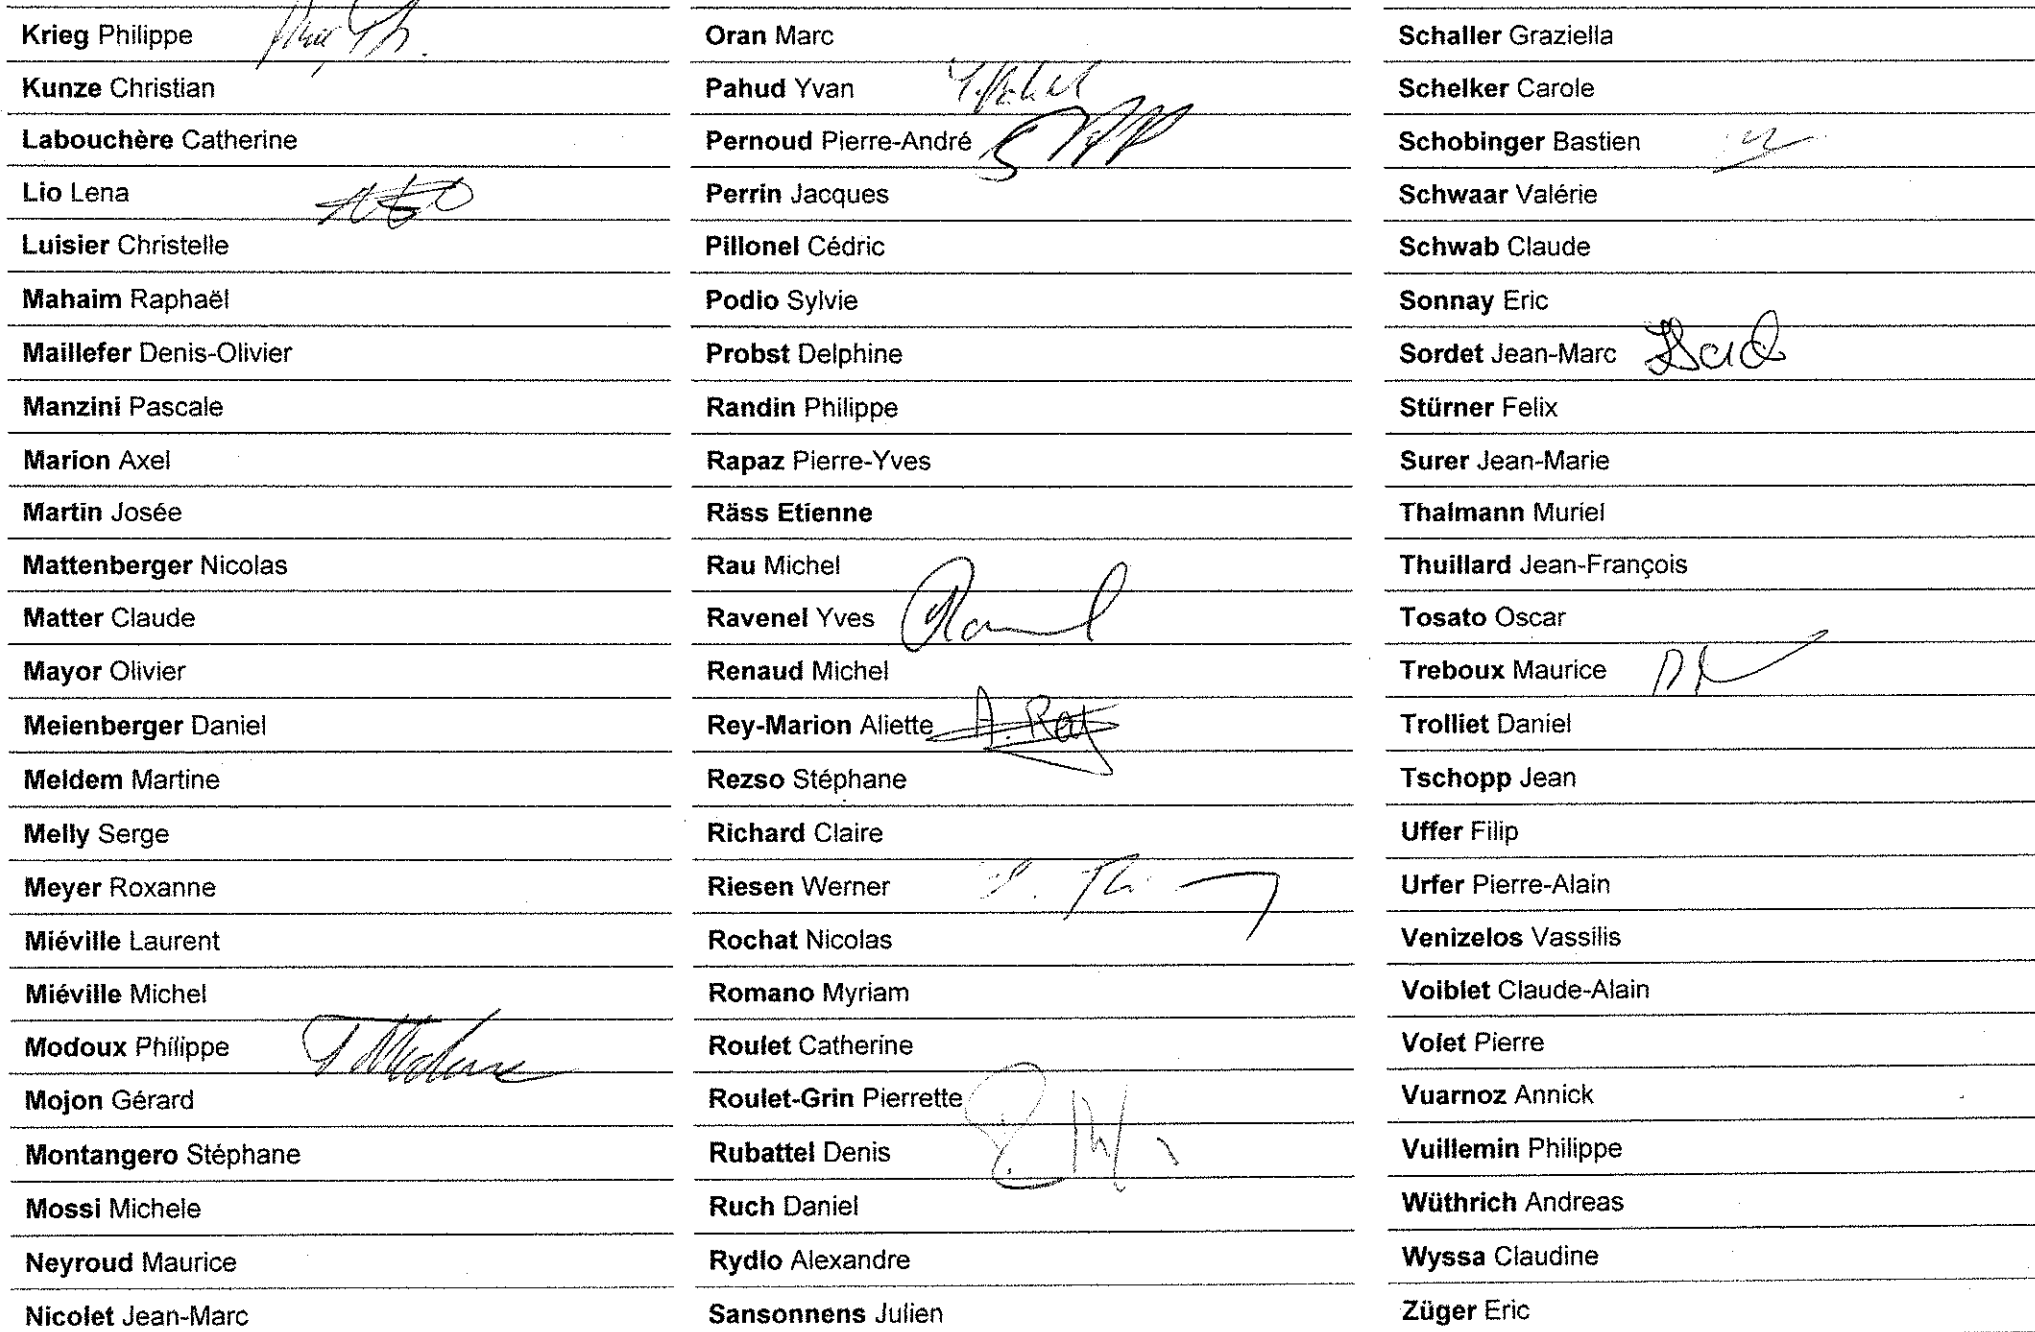 Krieg Philippe
Kunze Christian
Labouchère Catherine
Lio Lena
Luisier Christelle
Mahaim Raphaël
Maillefer Denis-Olivier
Manzini Pascale
Marion Axel
Martin Josée
Mattenberger Nicolas
Matter Claude
Mayor Olivier
Meienberger Daniel
Meldem Martine
Melly Serge
Meyer Roxanne
Miéville Laurent
Miéville Michel
Modoux Philippe
Mojon Gérard
Montangero Stéphane
Mossi Michele
Neyroud Maurice
Nicolet Jean-Marc
Oran Marc
Pahud Yvan
Pernoud Pierre-André
Perrin Jacques
Pillonel Cédric
Podio Sylvie
Probst Delphine
Randin Philippe
Rapaz Pierre-Yves
Räss Etienne
Rau Michel
Ravenel Yves
Renaud Michel
Rey-Marion Aliette A. Rey
Rezso Stéphane
Richard Claire
Riesen Werner
Rochat Nicolas
Romano Myriam
Roulet Catherine
Roulet-Grin Pierrette
Rubattel Denis
Ruch Daniel
Rydlo Alexandre
Sansonnens Julien
Schaller Graziella
Schelker Carole
Schobinger Bastien
Schwaar Valérie
Schwab Claude
Sonnay Eric
Sordet Jean-Marc
Stürner Felix
Surer Jean-Marie
Thalmann Muriel
Thuillard Jean-François
Tosato Oscar
Treboux Maurice
Trolliet Daniel
Tschopp Jean
Uffer Filip
Urfer Pierre-Alain
Venizelos Vassilis
Voiblet Claude-Alain
Volet Pierre
Vuarnoz Annick
Vuillemin Philippe
Wüthrich Andreas
Wyssa Claudine
Züger Eric